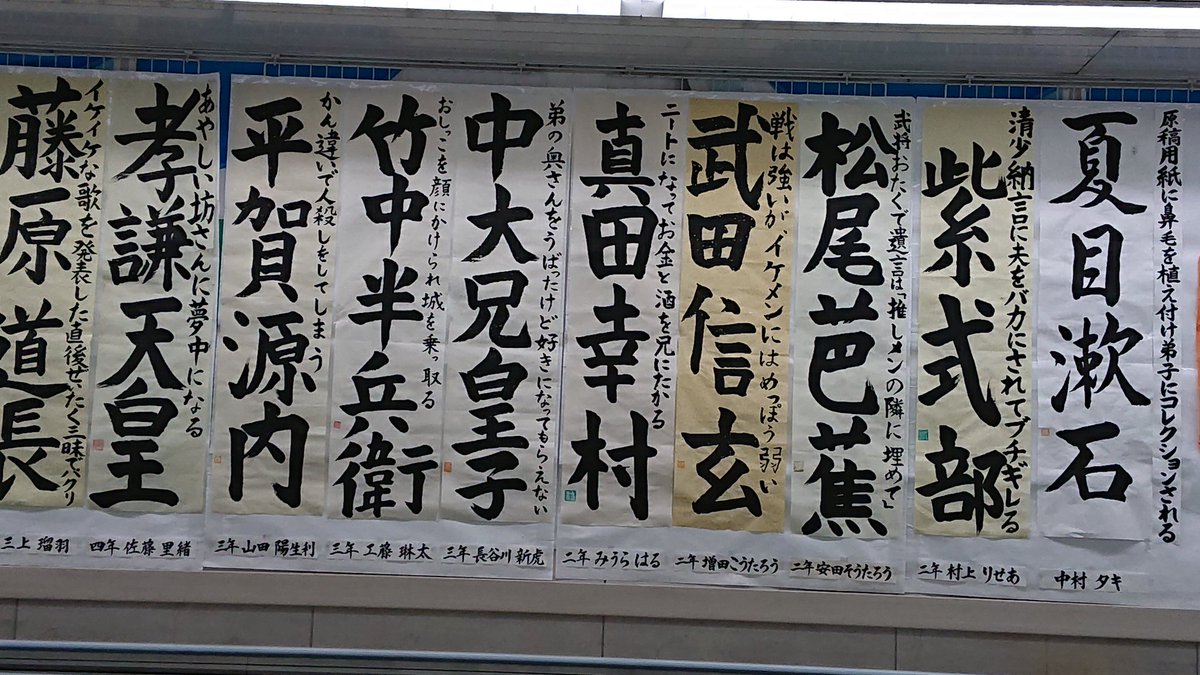 原稿用紙に鼻毛を植え付け弟子にコレクションされる
夏目漱石
中村 タキ
清少納言に夫をバカにされてブチギレる
紫式部
二年 村上 りせあ
武将おたくで遺言は「推しメンの隣に埋めて」
松尾芭蕉
二年 安田そうたろう
戦は強いが、イケメンにはめっぽう弱い
武田信玄
二年 増田こうたろう
ニートになってお金と酒を兄にたかる
真田幸村
二年 みうら はる
弟の奥さんをうばったけど好きになってもらえない
中大兄皇子
三年 長谷川 新虎
おしっこを顔にかけられ城を乗っ取る
竹中半兵衛
三年 工藤 琳太
かん違いで人殺しをしてしまう
平賀源内
三年 山田 陽生利
あやしい坊さんに夢中になる
孝謙天皇
四年 佐藤 里緒
イケイケな歌を発表した直後ぜいたく三昧でポックリ
藤原道長
三上 瑠羽